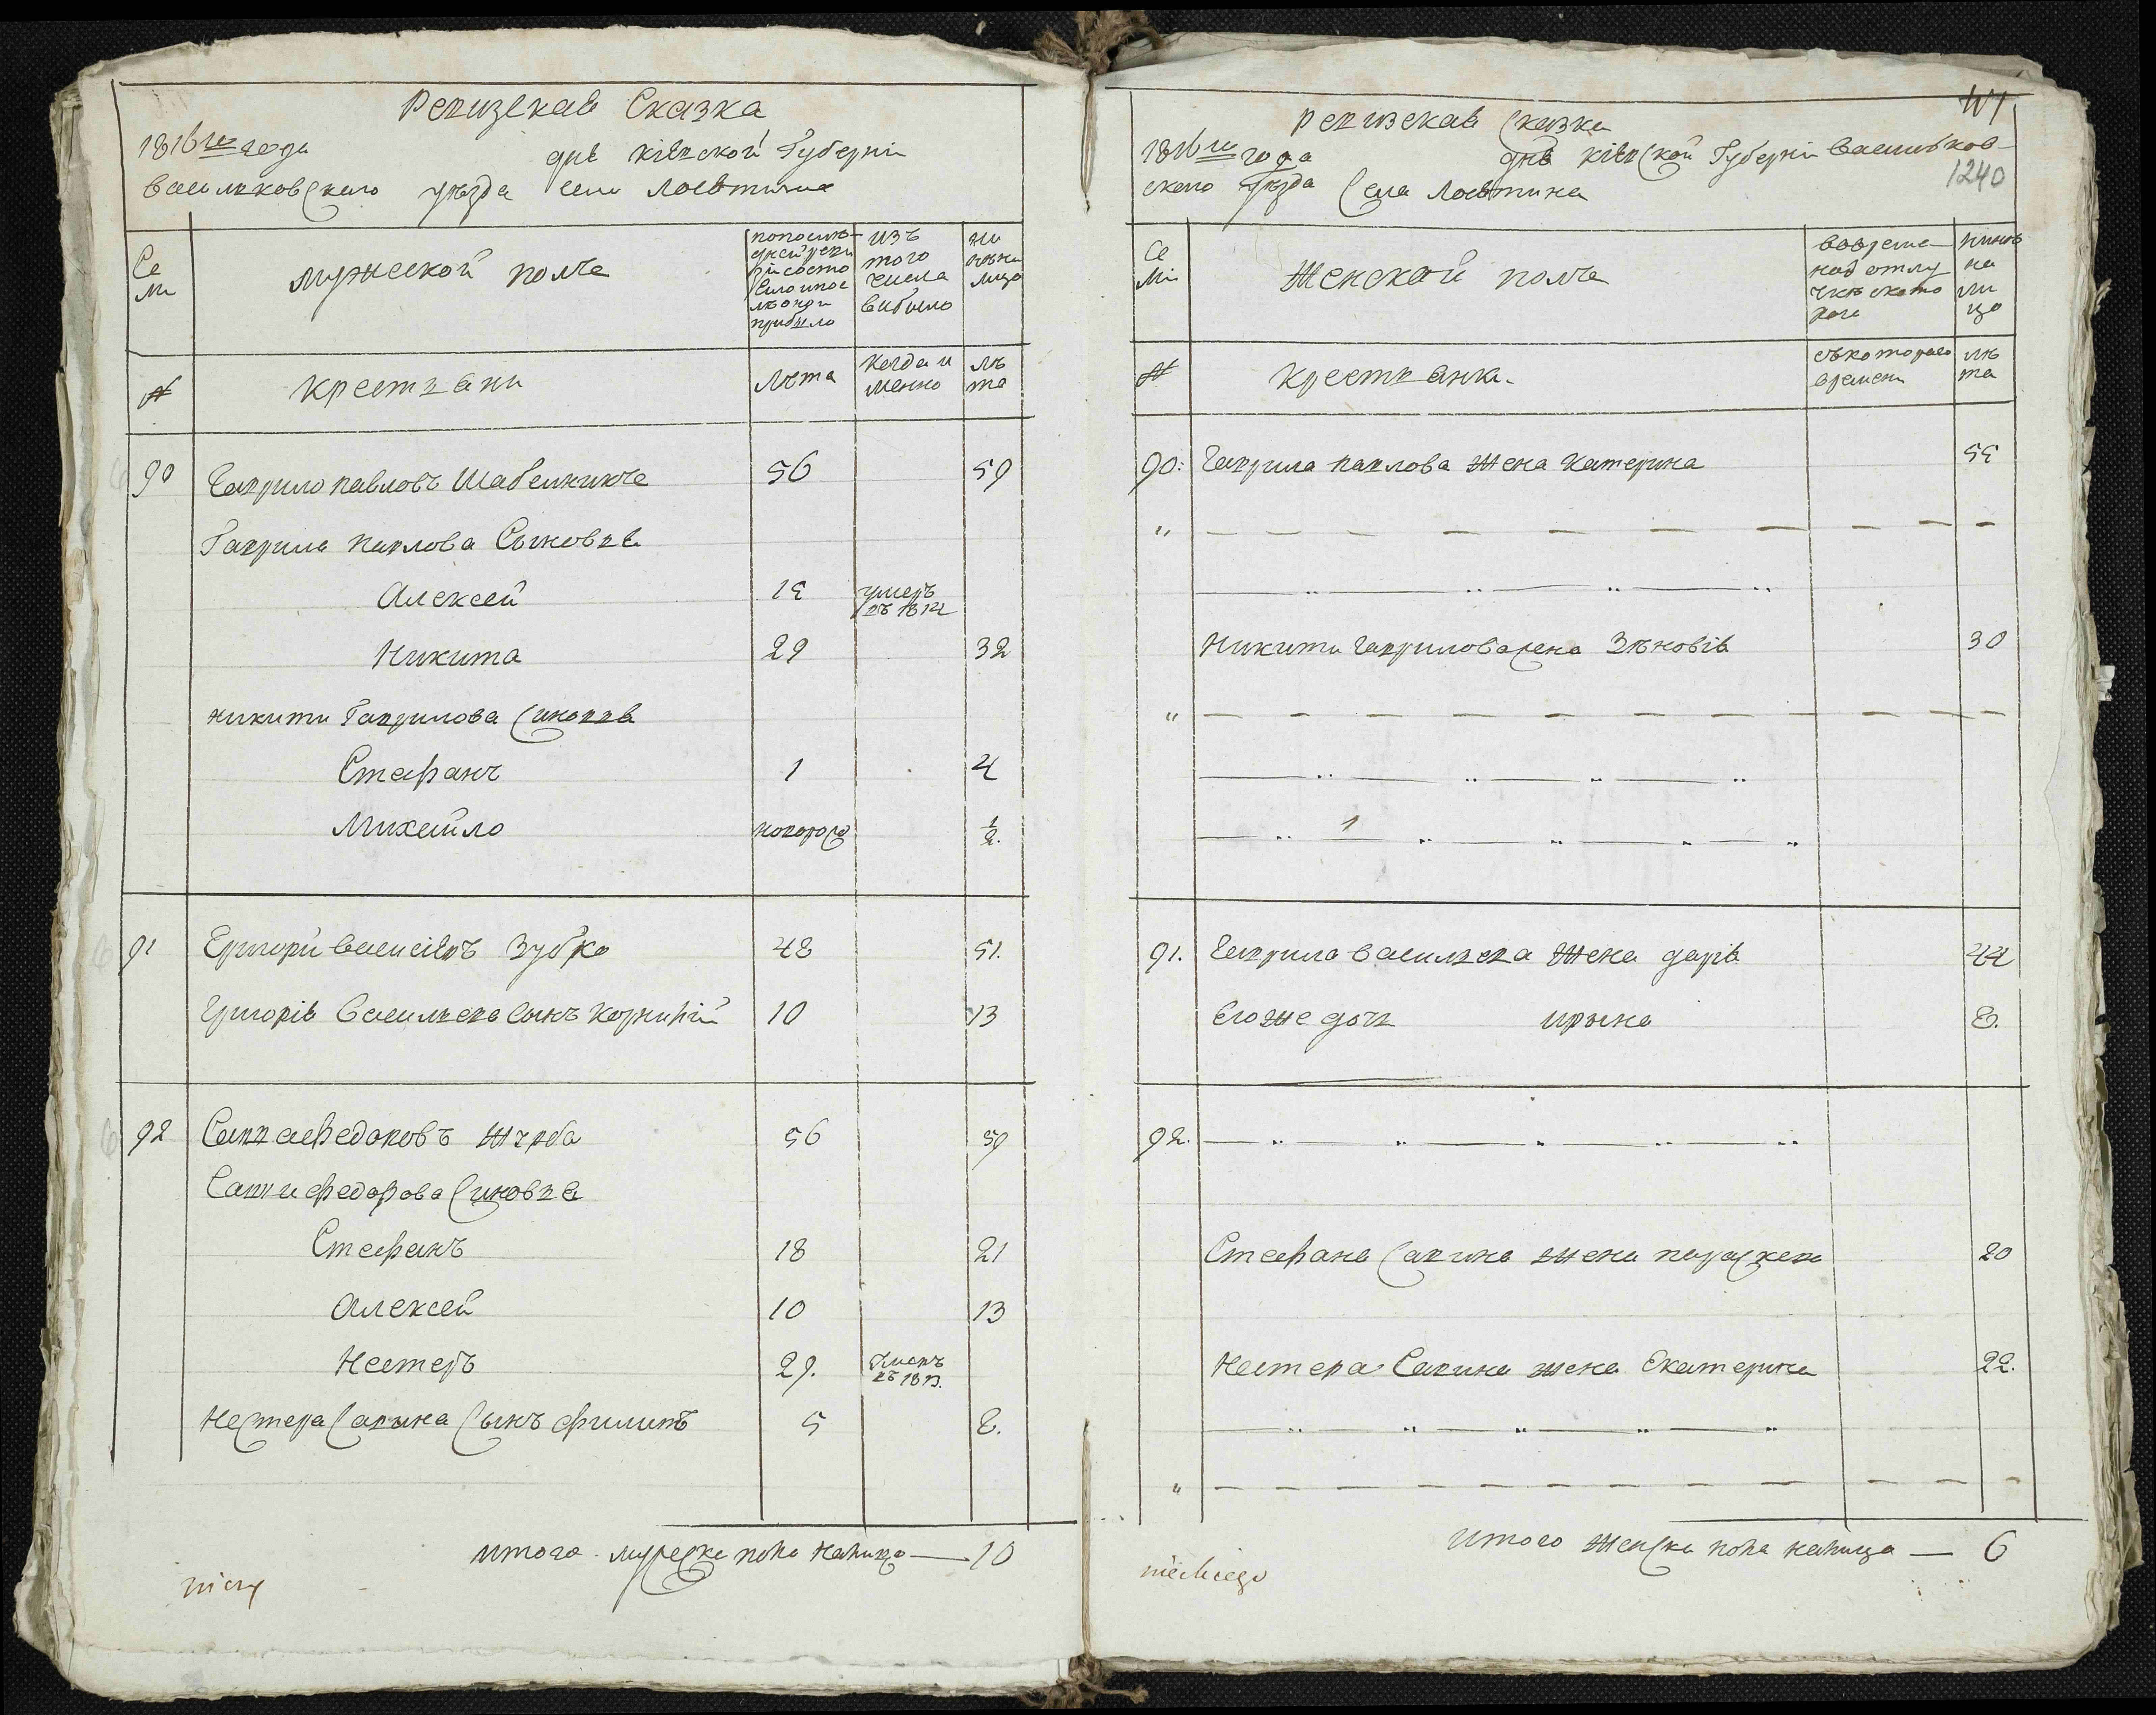 Ревизская Сказка
1816го года дня Кіевской Губерніи
Васильковскаго уезда села Лосятина
Се
ми
Мужеской полъ
попослѣ
дней реви
зіи состо
яло и пос
лѣ оной
прибыло
изъ
того
числа
выбыло
ны
нѣ на
лицо
№
Крестьяни
Лѣта
когда и
менно
лѣ
та
90 Гаврило Павловъ Шабелникъ 56 59
Гаврила Павлова Сыновья
Алексей 15 умеръ
въ 1814
Никита 29 32
Никити Гаврилова Синовья
Стефанъ 1 4
Михайло новорож 1/2
91 Григори Василіевъ Зубко 48 51.
Григорія Васильева сынъ Корнилій 10 13
92 Савва Федоровъ Журба 56 59
Савви Федорова Синовья
Стефанъ 18 21
Алексей 10 13
Нестеръ 29. умеръ
въ 1813.
Нестера Савина Сынъ Филипъ 5 8.
Итого мужеска пола налицо — 10
1240
Ревизская Сказка
1816го года дня Кіевской Губерніи Васильков-
скаго уезда Села Лосятина
Се
мі
Женской полъ
вовремен
ной отлу
чкѣ
нынѣ
на
ли
цо
№
Крестьянки
съ котораго
времени
лѣ
та
90: Гаврила Павлова Жена Катерина 55
Никити Гаврилова жена Зѣновія 30
91. Гаврила Васильева Жена Дарія 44
Его же дочь Ирына 8.
92.
Стефана Савина жена Параскева 20
Нестера Савина жена Екатерина 22.
Итого женска пола налицо — 6